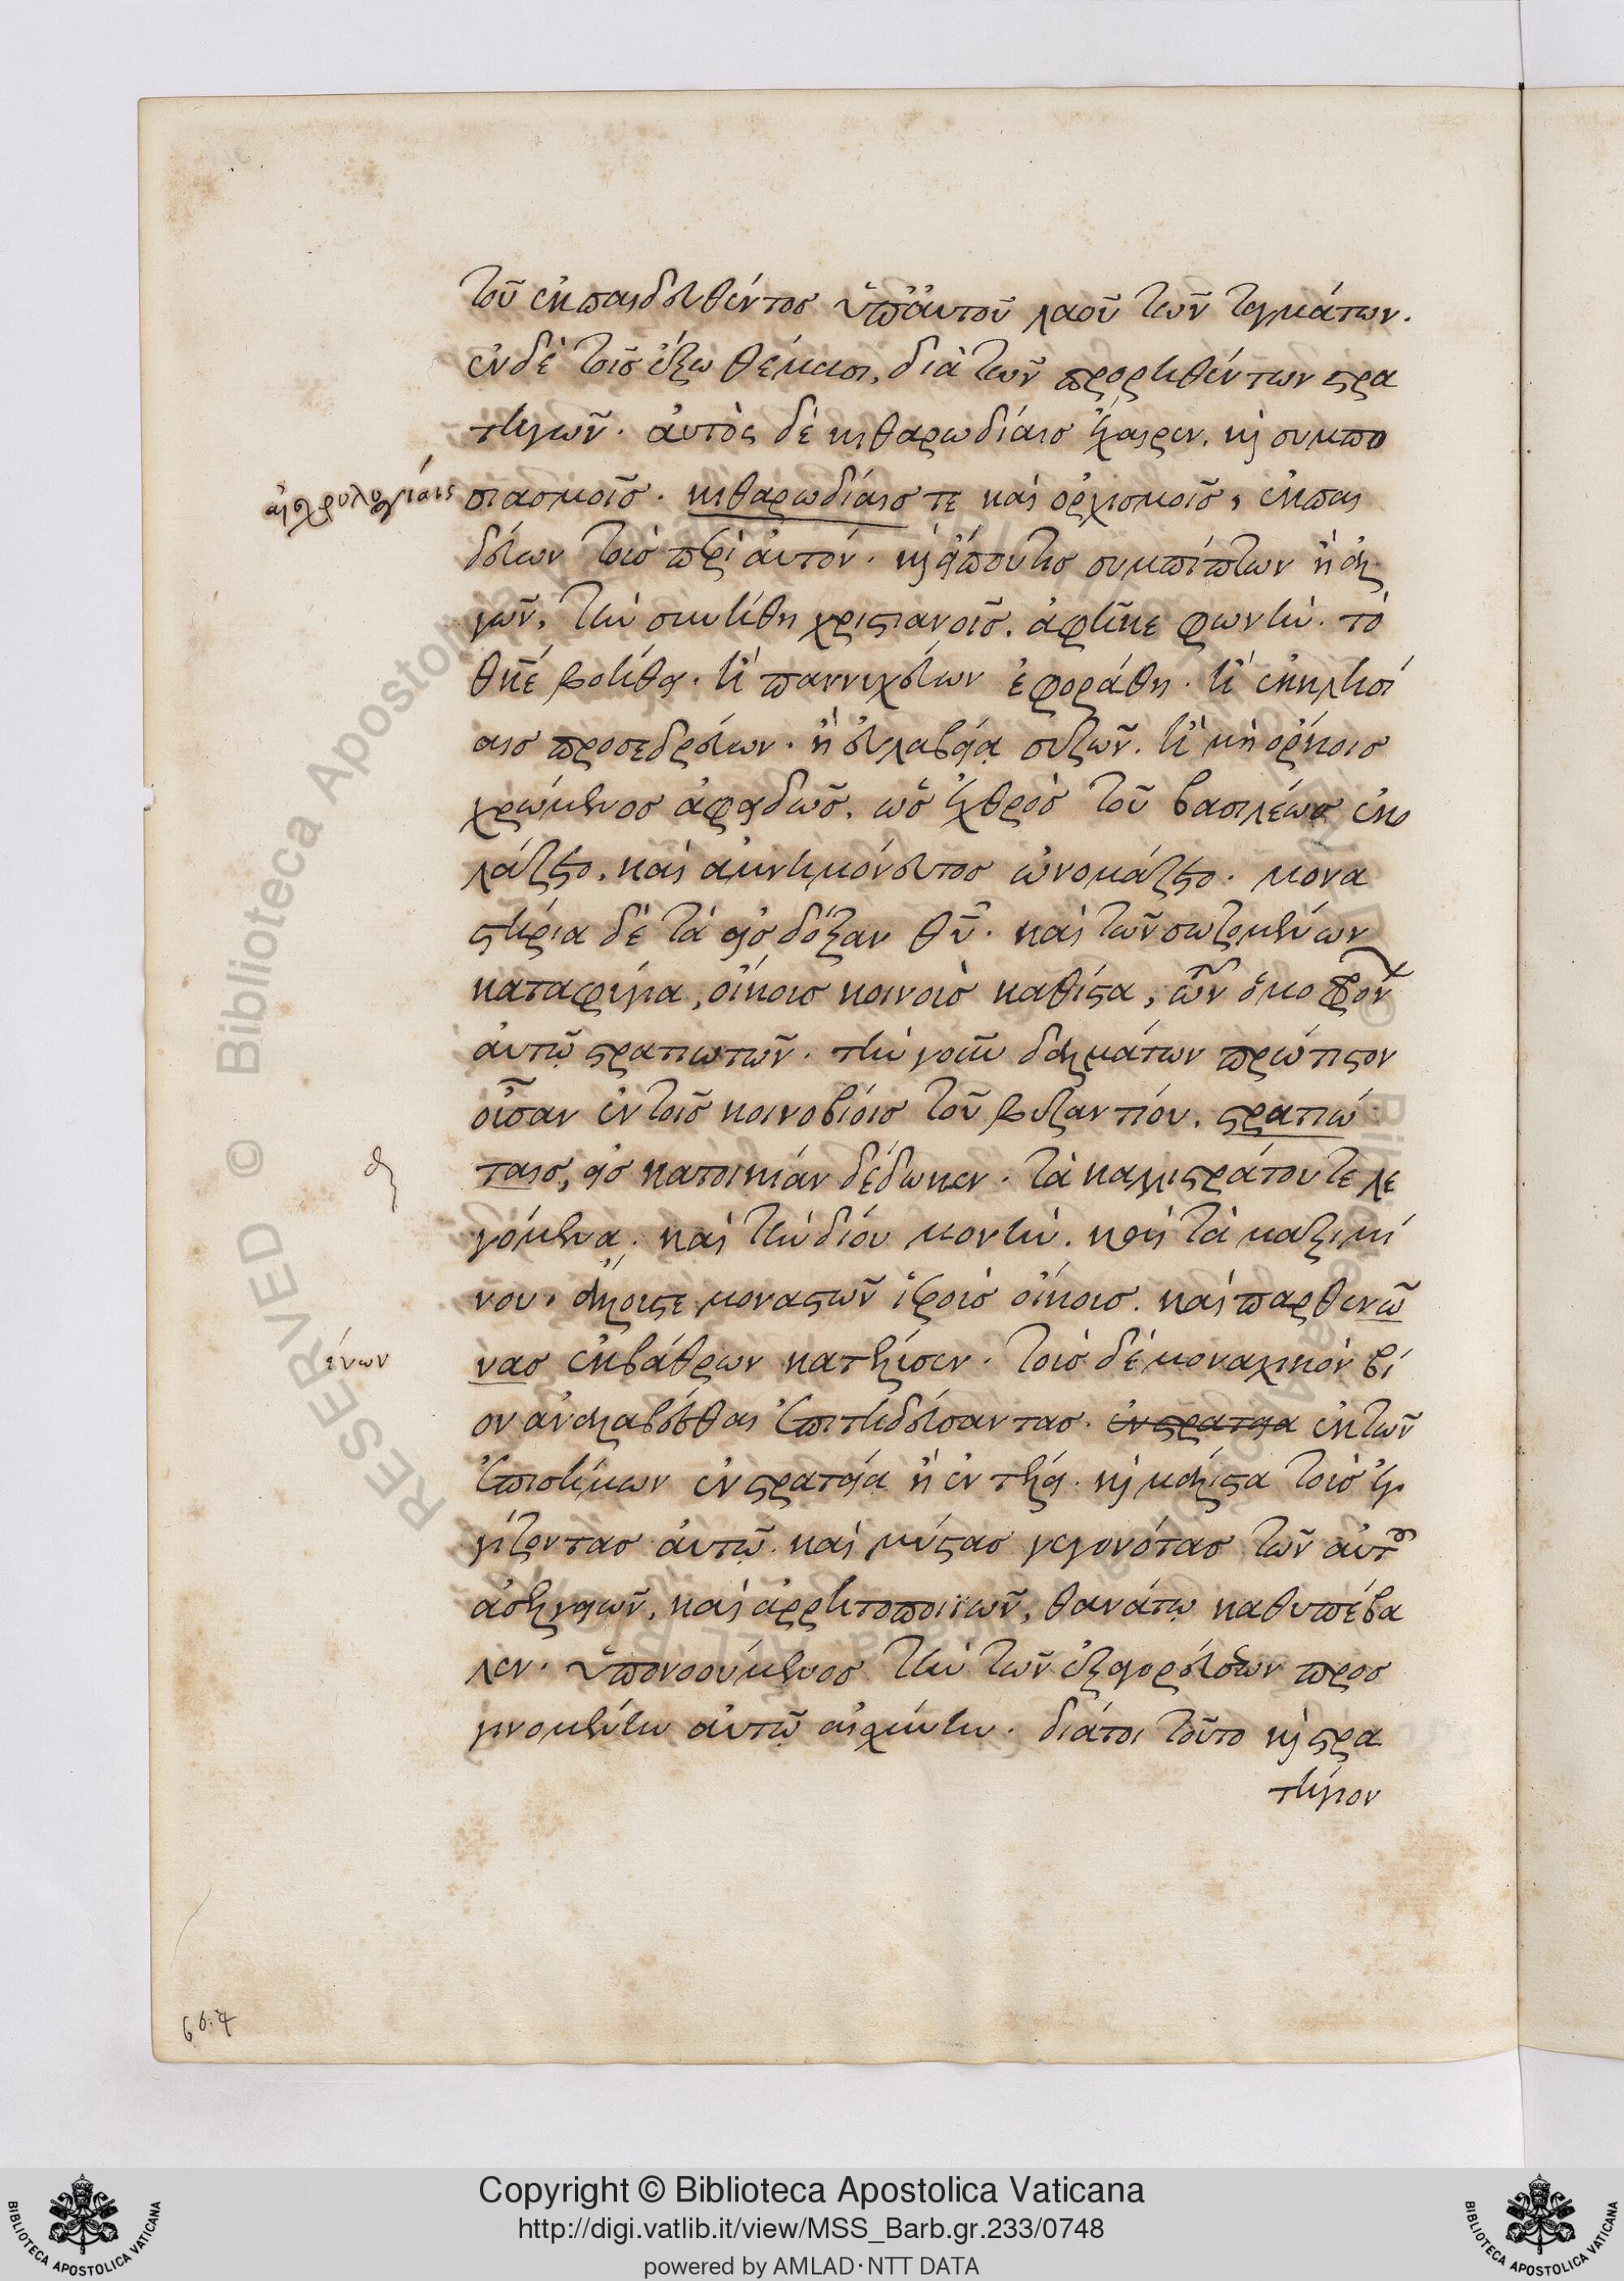 τοῦ ἐκπαιδευθέντος ὑπ' αὐτοῦ λαοῦ τῶν ταγμάτων.
ἐν δὲ τοῖς ἔξω θέμασι, διὰ τῶν προρηθέντων στρα
τηγῶν. αὐτὸς δὲ κιθαρωδίαις ἔχαιρεν. καὶ συμπο
αἰσχρολογίαις
σιασμοῖς. κιθαρωδίαις τε καὶ ὀρχισμοῖς, ἐκπαι
δεύων τοὺς περὶ αὐτόν. καὶ εἴπου τις συμπίπτων ἢ ἀλ
γῶν, τὴν συνήθη χριστιανοῖς. ἀφῆκε φωνήν. τὸ
θκε βοήθει. ἢ παννυχεύων ἐφοράθη. ἢ ἐκκλησί
αις προσεδρεύων. ἢ εὐλαβείᾳ συζῶν. ἢ μὴ ὅρκοις
χρώμενος ἀφειδῶς. ὡς ἐχθρὸς τοῦ βασιλέως ἐκο
λάζετο. καὶ ἀμνημόνευτος ὠνομάζετο. μονα
στήρια δὲ τὰ εἰς δόξαν θυ. καὶ τῶν σωζομένων
καταφύγια, οἴκους κοινοὺς καθίστα, τῶν ὁμοφρόν
αὐτῷ στρατιωτῶν. τὴν γοῦν δαλμάτων πρώτιστον
οὖσαν ἐν τοῖς κοινοβίοις τοῦ βυζαντίου. στρατιώ
ταις, εἰς κατοικίαν δέδωκεν. τὰ καλλιστράτου τε λε
γόμενα. καὶ τὴν δίου μονήν. καὶ τὰ μαξιμί
νου. ἄλλους τε μοναστῶν ἱεροὺς οἴκους. καὶ παρθενῶ
ένων
νας ἐκβάθρων κατέλυσεν. τοὺς δὲ μοναχικὸν βί
ον ἀναλαβέσθαι ἐπιτηδεύσαντας. ἐν στρατεία ἐκ τῶν
ἐπισήμων ἐν στρατείᾳ ἢ ἐν τέλει. καὶ μάλιστα τοὺς ἐγ
γίζοντας αὐτῷ. καὶ μύστας γεγονότας τῶν αὐτοῦ
ἀσελγειῶν, καὶ ἀρρητοποιϊῶν, θανάτῳ καθυπέβα
λεν. ὑπονοούμενος τὴν τῶν ἐξαγορεύσεων προσ
γινομένην αὐτῷ αἰσχύνην. διάτοι τοῦτο καὶ στρα
τήγιον
Copyright © Biblioteca Apostolica Vaticana
http://digi.vatlib.it/view/MSS_Barb.gr.233/0748
powered by AMLAD·NTT DATA